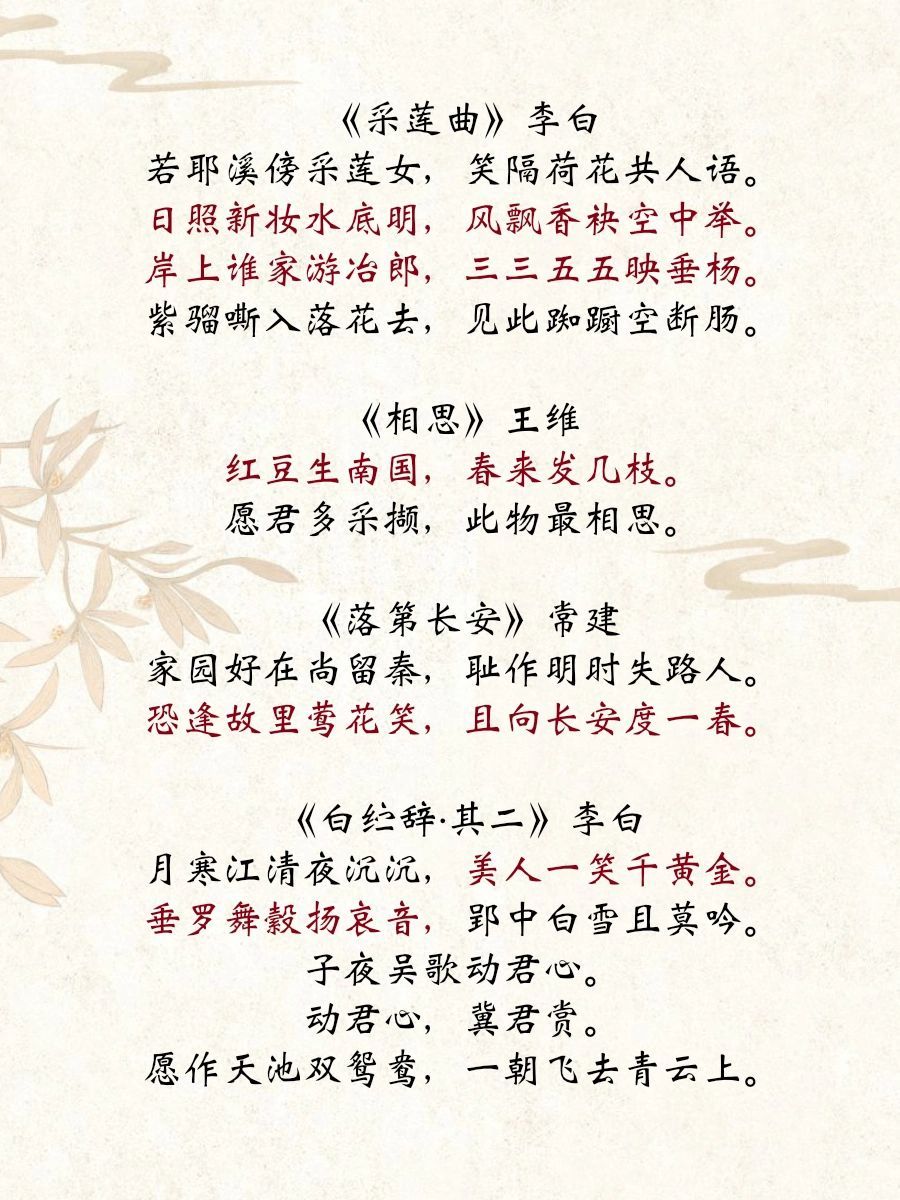 《采莲曲》李白
若耶溪傍采莲女，笑隔荷花共人语。
日照新妆水底明，风飘香袂空中举。
岸上谁家游冶郎，三三五五映垂杨。
紫骝嘶入落花去，见此踟蹰空断肠。
《相思》王维
红豆生南国，春来发几枝。
愿君多采撷，此物最相思。
《落第长安》常建
家园好在尚留秦，耻作明时失路人。
恐逢故里莺花笑，且向长安度一春。
《白纻辞·其二》李白
月寒江清夜沉沉，美人一笑千黄金。
垂罗舞縠扬哀音，郢中白雪且莫吟。
子夜吴歌动君心。
动君心，冀君赏。
愿作天池双鸳鸯，一朝飞去青云上。